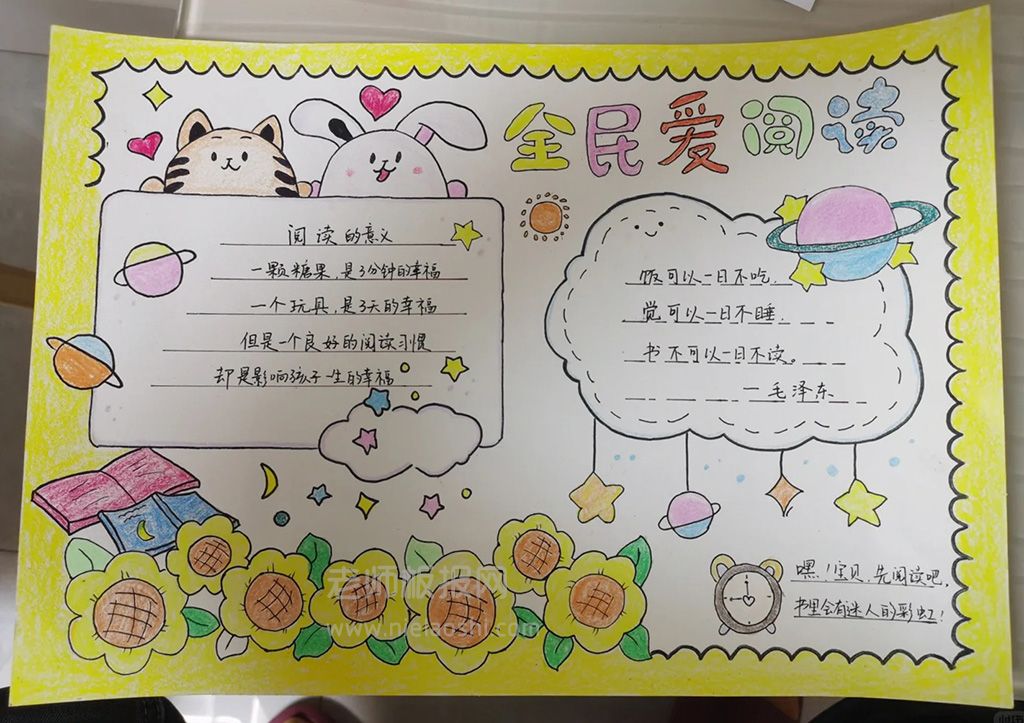 全民爱阅读
阅读的意义
一颗糖果,是3分钟的幸福
一个玩具,是3天的幸福
但是一个良好的阅读习惯
却是影响孩子一生的幸福
饭可以一日不吃.
觉可以一日不睡.
书不可以一日不读。
一毛泽东
嘿!宝贝,先阅读吧,
书里会有迷人的彩虹!
老师板报网